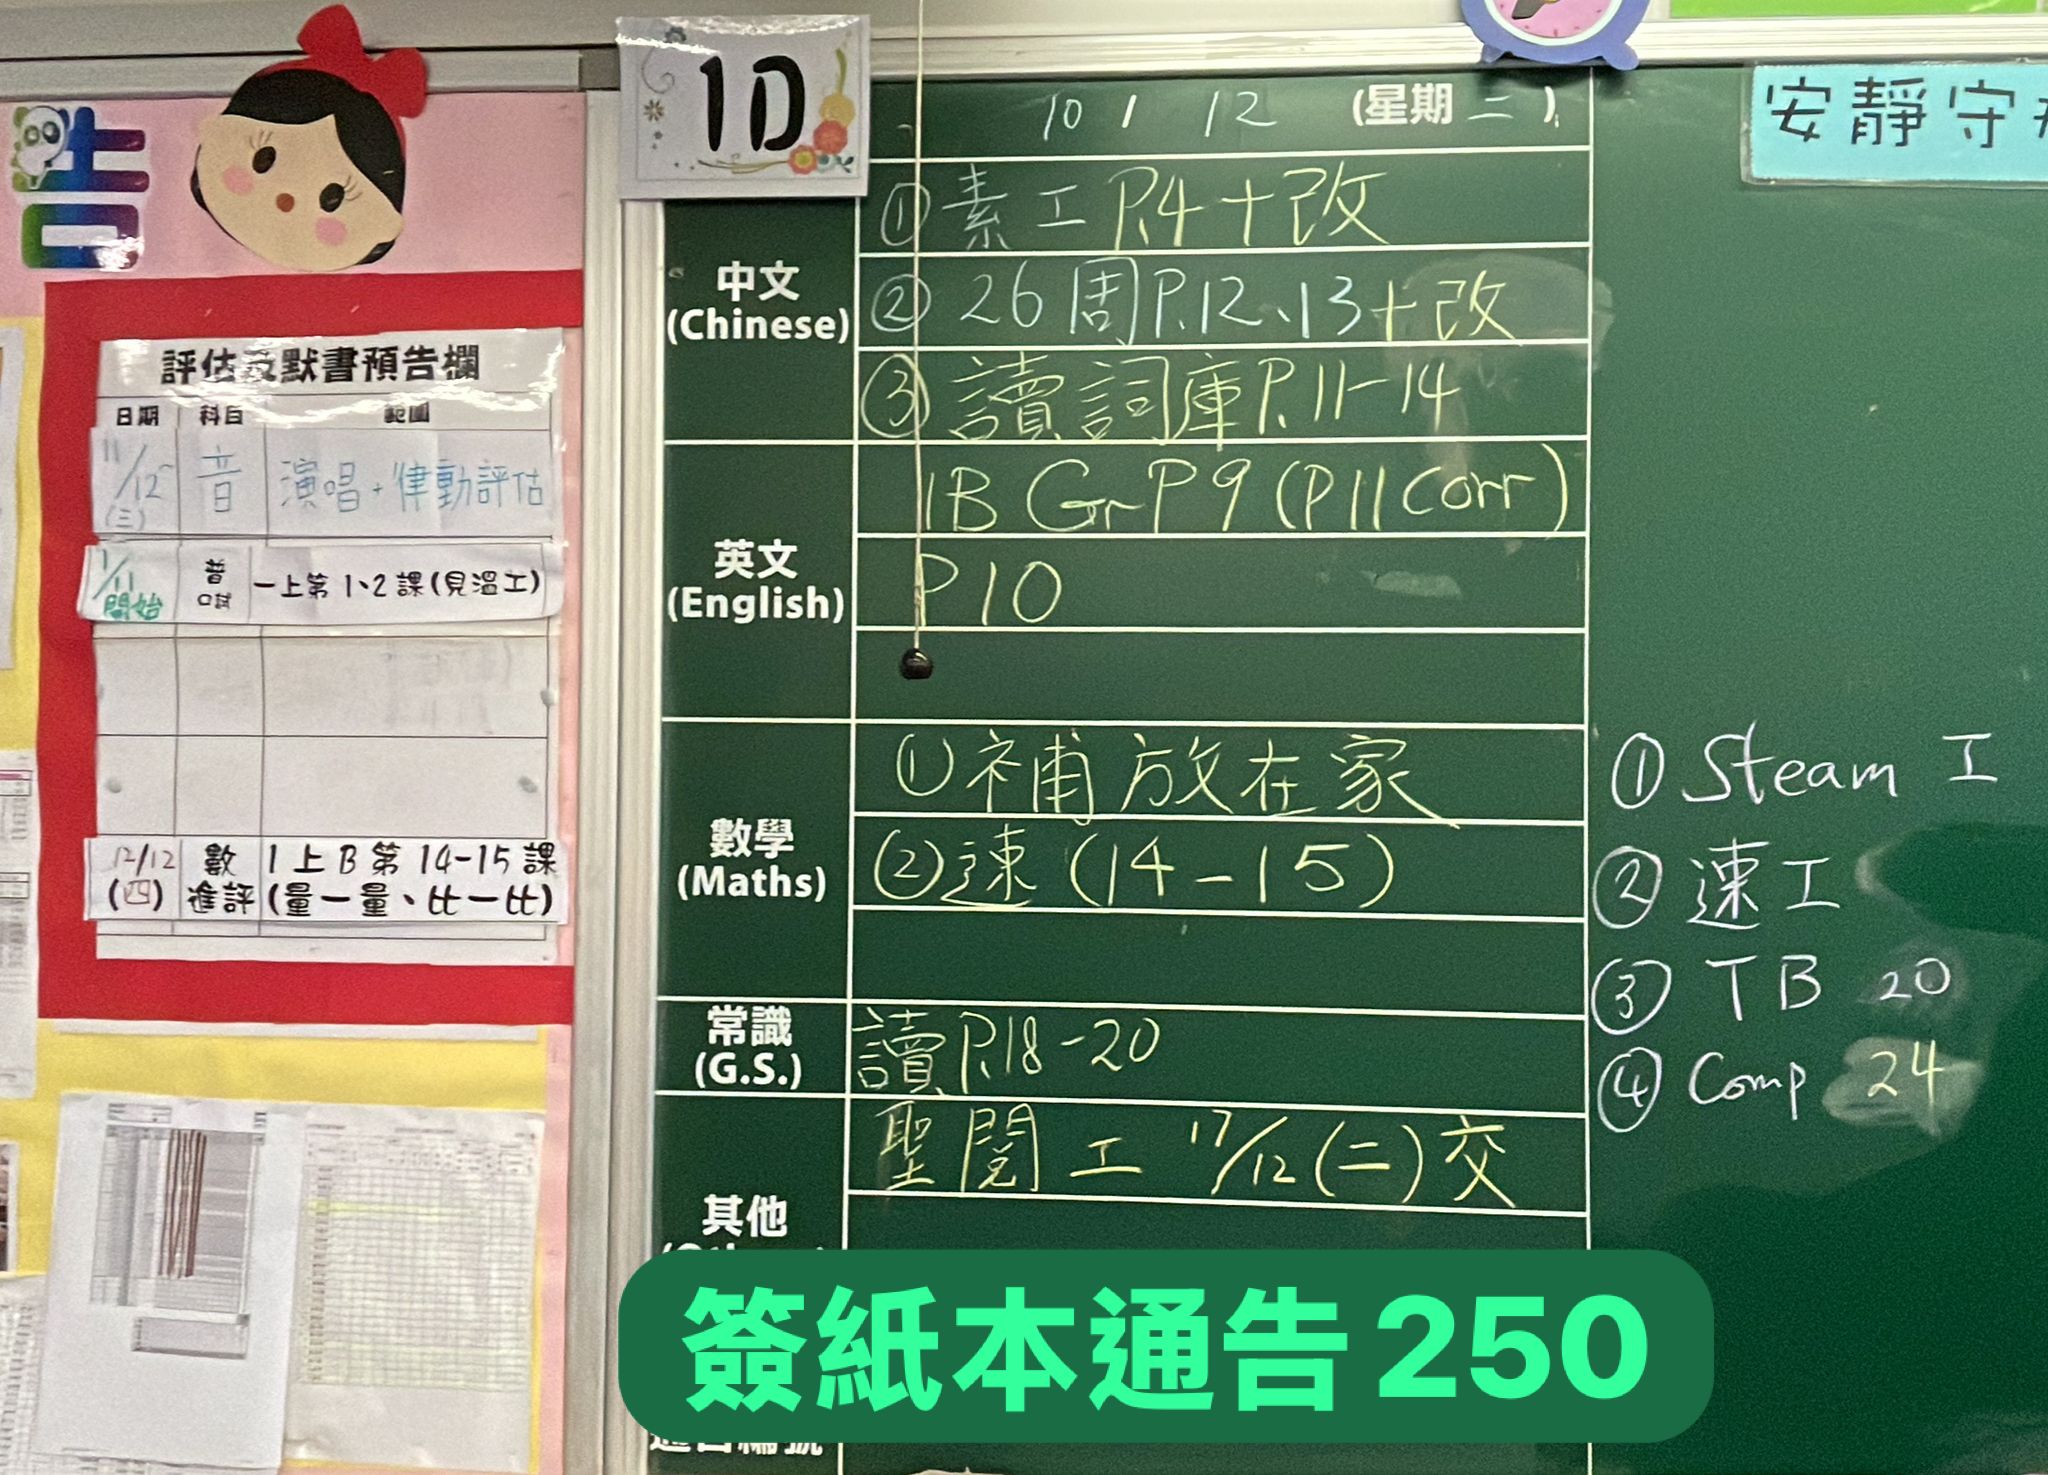 告
評估及默書預告欄
日期 科目 範圍
11/12 (三) 音 演唱+律動評估
1/11 開始 普 口試 一上第1、2課(見溫工)
12/12 (四) 數 進評 1上B第14-15課 (量一量、比一比)
1D
10 1 12 (星期二)
中文 (Chinese)
①素工P.4+改
②26周P.12、13+改
③讀詞庫P.11-14
英文 (English)
1B Gr P9 (P11 corr)
P10
數學 (Maths)
①補放在家
②速(14-15)
常識 (G.S.)
讀P.18-20
其他
聖閱工 17/12(二)交
安靜守
①Steam工
②速工
③TB 20
④Comp 24
簽紙本通告250